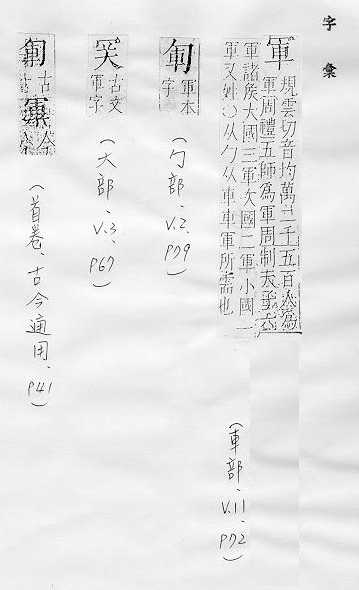 字彙
軍 規雲切音均萬二千五百人為
軍周禮五師為軍周制天子六
軍諸侯大國三軍次國二軍小國一
軍又姓○从勹从車車軍所需也
(車部、V.11、P72)
軍本
字
(勹部、V.2、P79)
古文
軍字
(大部、V.3、P67)
古
軍 今
(首卷、古今通用、P41)